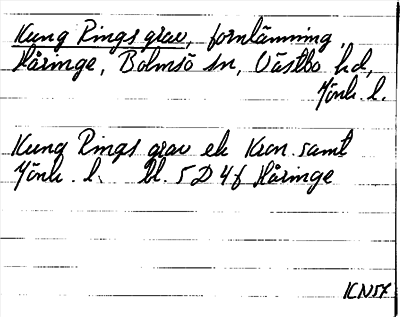 Kung Rings grav, fornlämning,
Håringe, Bolmsö sn, Västbo hd,
Jönk. l.
Kung Rings grav ek Kron. samt
Jönk. l. bl. 5 D 4f Håringe
ICN57